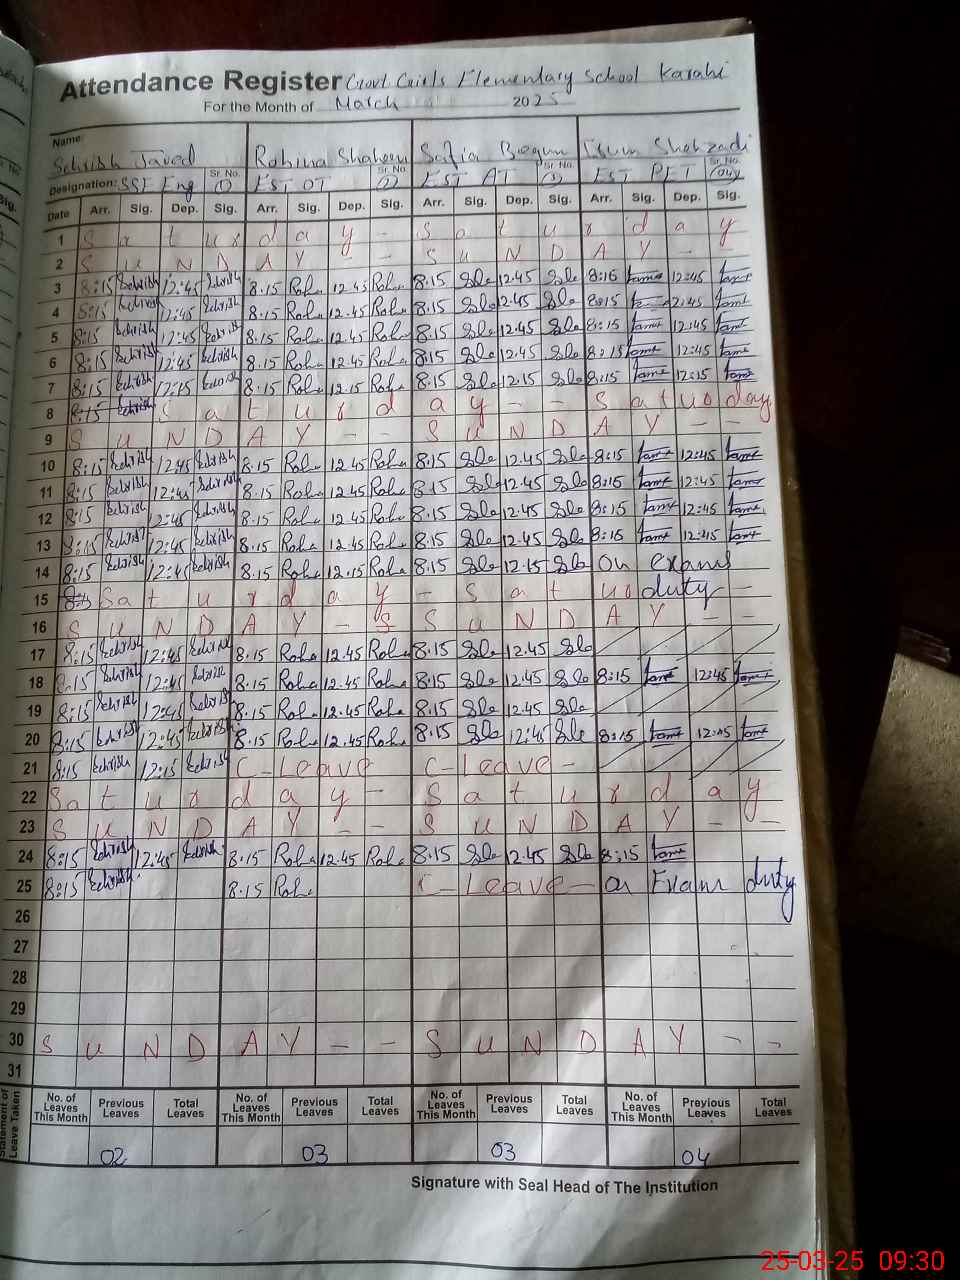 Attendance Register Govt Girls Elementary School Karahi
For the Month of March 2025
Name:
Sehrish Javed Rohina Shaheen Safia Begum Shahzadi
Designation: SSE Eng Sr. No. (1) EST DT Sr. No. (2) EST AT Sr. No. EST PET Sr. No. (04)
Date Arr. Sig. Dep. Sig. Arr. Sig. Dep. Sig. Arr. Sig. Dep. Sig. Arr. Sig. Dep. Sig.
1 S a t u r d a y - S a t u r d a y
2 S u N D A Y - - S u N D A Y - -
3 8:15 Sehrish 12:45 Sehrish 8.15 Roha 12.45 Roha 8.15 12.45 8:16 12:45
4 8:15 Sehrish 12:45 Sehrish 8.15 Roha 12.45 Roha 8.15 12.45 8:15 12:45
5 8:15 Sehrish 12:45 Sehrish 8.15 Roha 12.45 Roha 8.15 12.45 8:15 12:45
6 8:15 Sehrish 12:45 Sehrish 8.15 Roha 12.45 Roha 8.15 12.45 8:15 12:45
7 8:15 Sehrish 12:15 Sehrish 8.15 Roha 12.15 Roha 8.15 12.15 8:15 12:15
8 8:15 Sehrish S a t u r d a y - - S a t u r d a y
9 S u N D A Y - - S u N D A Y - -
10 8:15 Sehrish 12:45 Sehrish 8.15 Roha 12.45 Roha 8.15 12.45 8:15 12:45
11 8:15 Sehrish 12:45 Sehrish 8.15 Roha 12.45 Roha 8.15 12.45 8:16 12:45
12 8:15 Sehrish 12:45 Sehrish 8.15 Roha 12.45 Roha 8.15 12.45 8:15 12:45
13 8:15 Sehrish 12:45 Sehrish 8.15 Roha 12.45 Roha 8.15 12.45 8:16 12:45
14 8:15 Sehrish 12:45 Sehrish 8.15 Roha 12.15 Roha 8.15 12.15 on exams
15 S a t u r d a y - S a t u duty -
16 S u N D A Y - S u N D A Y - -
17 8:15 Sehrish 12:45 Sehrish 8.15 Roha 12.45 Roha 8.15 12.45
18 8:15 Sehrish 12:45 Sehrish 8.15 Roha 12.45 Roha 8.15 12.45 8:15 12:45
19 8:15 Sehrish 12:45 Sehrish 8.15 Roha 12.45 Roha 8.15 12.45
20 8:15 Sehrish 12:45 Sehrish 8.15 Roha 12.45 Roha 8.15 12:45 8:15 12:45
21 8:15 Sehrish 12:15 Sehrish C-Leave C-Leave -
22 S a t u r d a y - S a t u r d a y
23 S u N D A Y - - S u N D A Y - -
24 8:15 Sehrish 12:45 Sehrish 8.15 Roha 12.45 Roha 8.15 12.45 8:15
25 8:15 Sehrish 8.15 Roha C-Leave - on Exam duty
26
27
28
29
30 S u N D A Y - - S u N D A Y - -
31
Statement of Leave Taken No. of Leaves This Month Previous Leaves Total Leaves No. of Leaves This Month Previous Leaves Total Leaves No. of Leaves This Month Previous Leaves Total Leaves No. of Leaves This Month Previous Leaves Total Leaves
02 03 03 04
Signature with Seal Head of The Institution
25-03-25 09:30